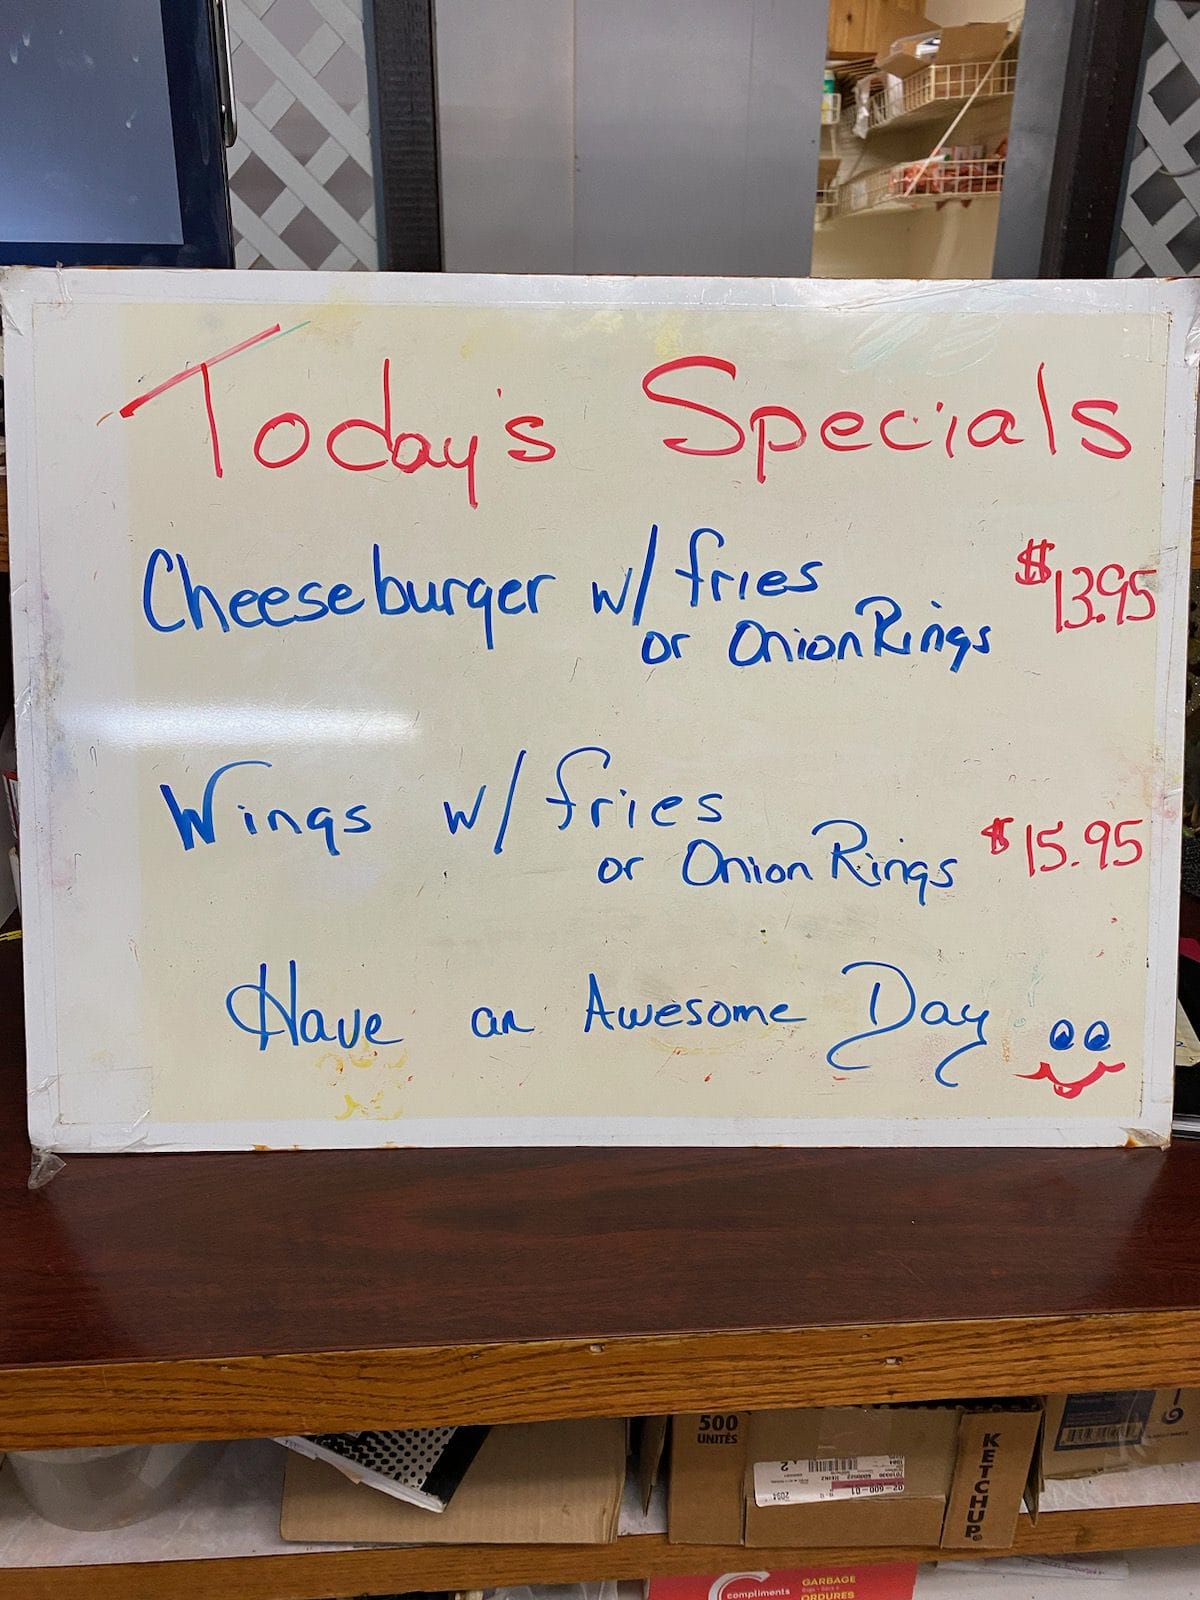 Today's Specials
Cheeseburger w/ fries $13.95
or Onion Rings
Wings w/ fries
or Onion Rings $15.95
Have an Awesome Day
500
UNITÉS
KETCHUP
02-600-01
HEINZ
compliments
GARBAGE
ORDURES